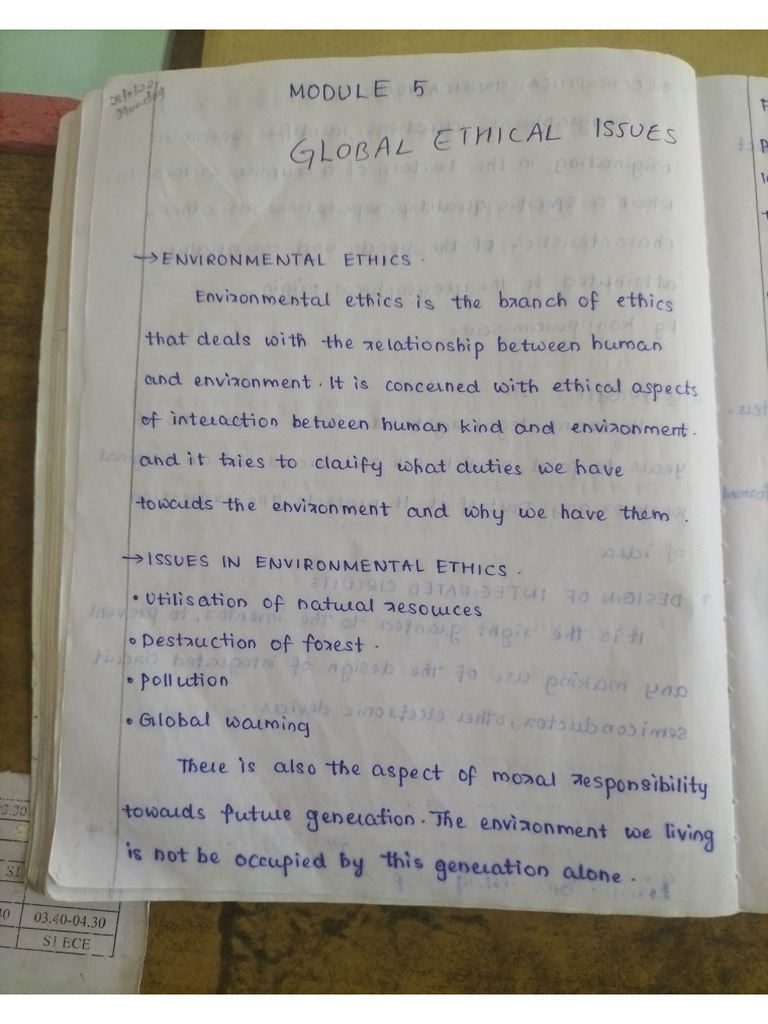 Monday
MODULE 5
GLOBAL ETHICAL ISSUES
→ENVIRONMENTAL ETHICS.
Environmental ethics is the branch of ethics
that deals with the relationship between human
and environment. It is concerned with ethical aspects
of interaction between human kind and environment.
and it tries to clarify what duties we have
towards the environment and why we have them.
→ISSUES IN ENVIRONMENTAL ETHICS.
• Utilisation of natural resources
• Destruction of forest.
• Pollution
• Global warming
There is also the aspect of moral responsibility
towards future generation. The environment we living
is not be occupied by this generation alone.
03.40-04.30
S1 ECE